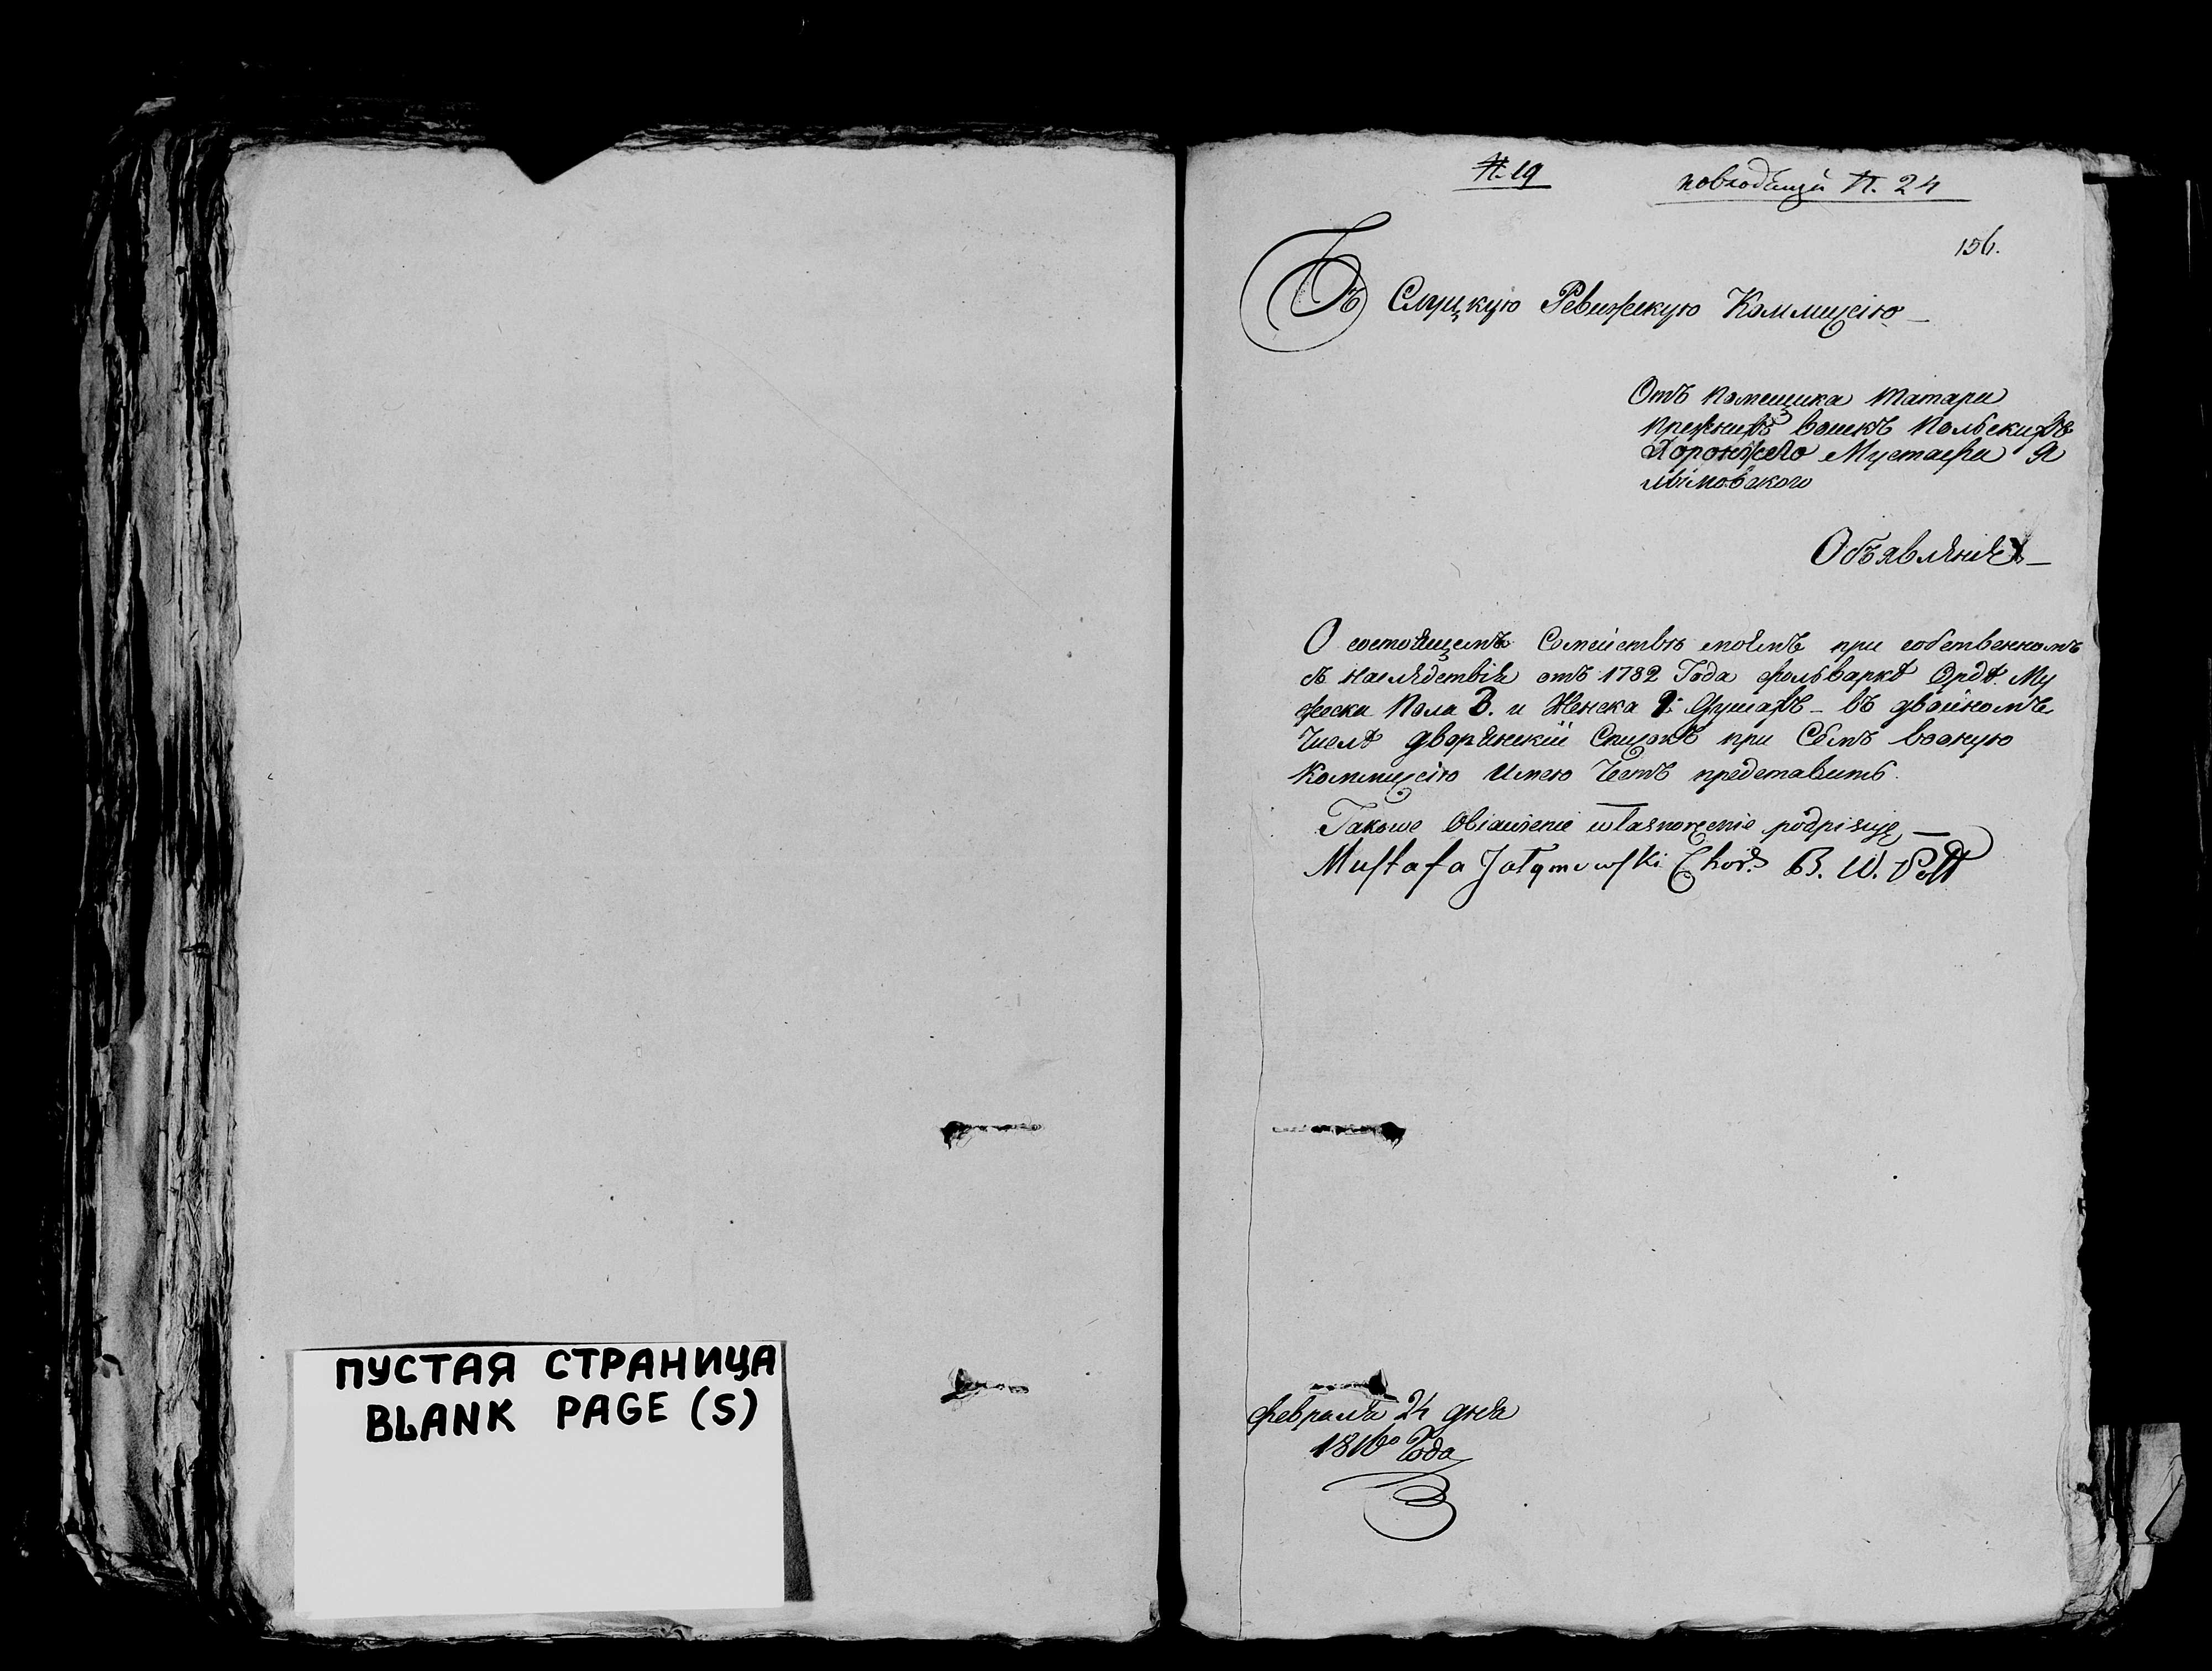 ПУСТАЯ СТРАНИЦА
BLANK PAGE (S)
N. 19
N. 24
156.
Въ Слуцкую Ревижскую Коммисію
Отъ помещика татара
прежнихъ воискъ Польскихъ
Хоронжего Мустафи Я
лымовского
Объявленіе
О состоящемъ Семействѣ моемъ при собственномъ
съ наслѣдствія отъ 1782 Года фольваркѣ Ордѣ. Му
жески Пола и Женска Душахъ въ двойномъ
Числѣ дворянскій Списокъ при Семъ въ оную
Коммисію имею Честь представить.
Takowe Obiawienie własnoręcznie podpisuję
Mustafa Jałymowski Chorą: B. W. Pol
февраля 24 дня
1816го Года